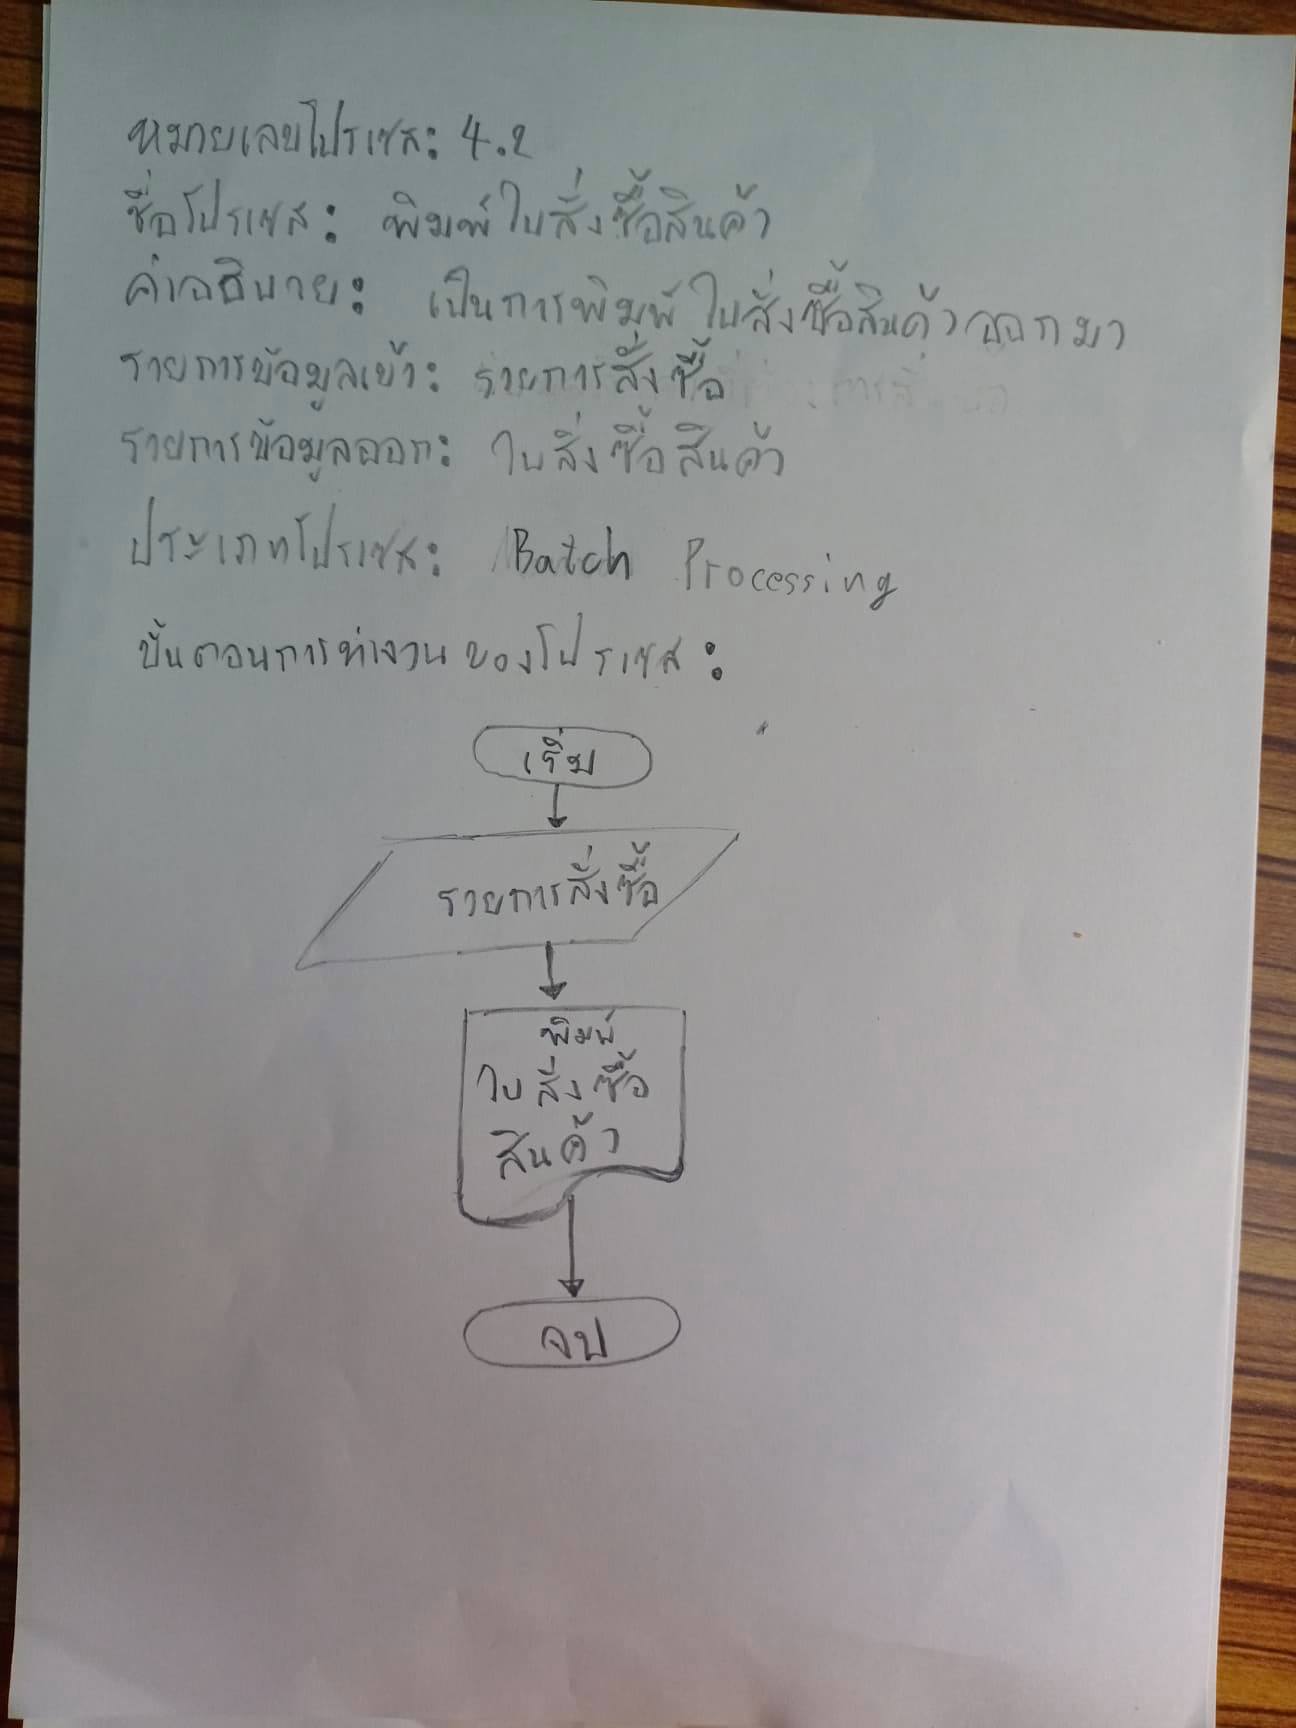 หมายเลขโปรเซส: 4.2
ชื่อโปรเซส: พิมพ์ใบสั่งซื้อสินค้า
คำอธิบาย: เป็นการพิมพ์ใบสั่งซื้อสินค้าออกมา
รายการข้อมูลเข้า: รายการสั่งซื้อ
รายการข้อมูลออก: ใบสั่งซื้อสินค้า
ประเภทโปรเซส: Batch Processing
ขั้นตอนการทำงานของโปรเซส:
เริ่ม
รายการสั่งซื้อ
พิมพ์
ใบสั่งซื้อ
สินค้า
จบ